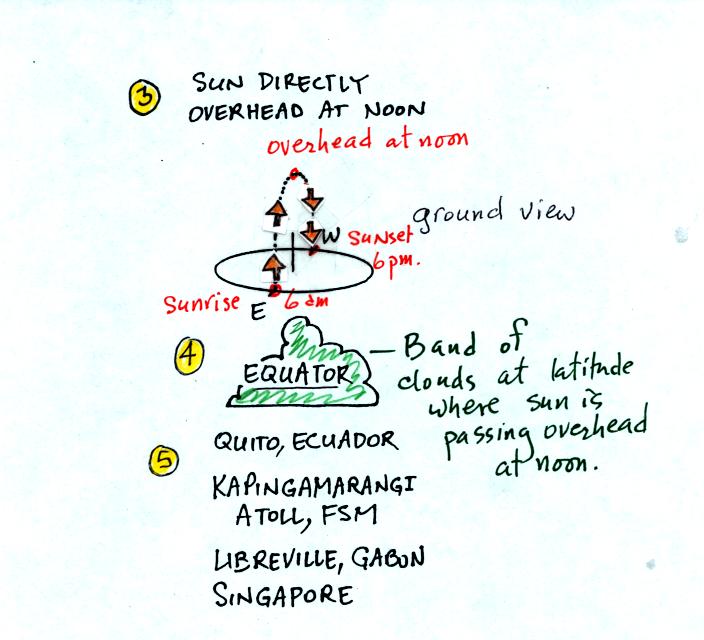 3 SUN DIRECTLY
OVERHEAD AT NOON
overhead at noon
ground view
W sunset
6 pm.
Sunrise E 6 am
4 EQUATOR
Band of
clouds at latitude
where sun is
passing overhead
at noon.
5 QUITO, ECUADOR
KAPINGAMARANGI
ATOLL, FSM
LIBREVILLE, GABON
SINGAPORE